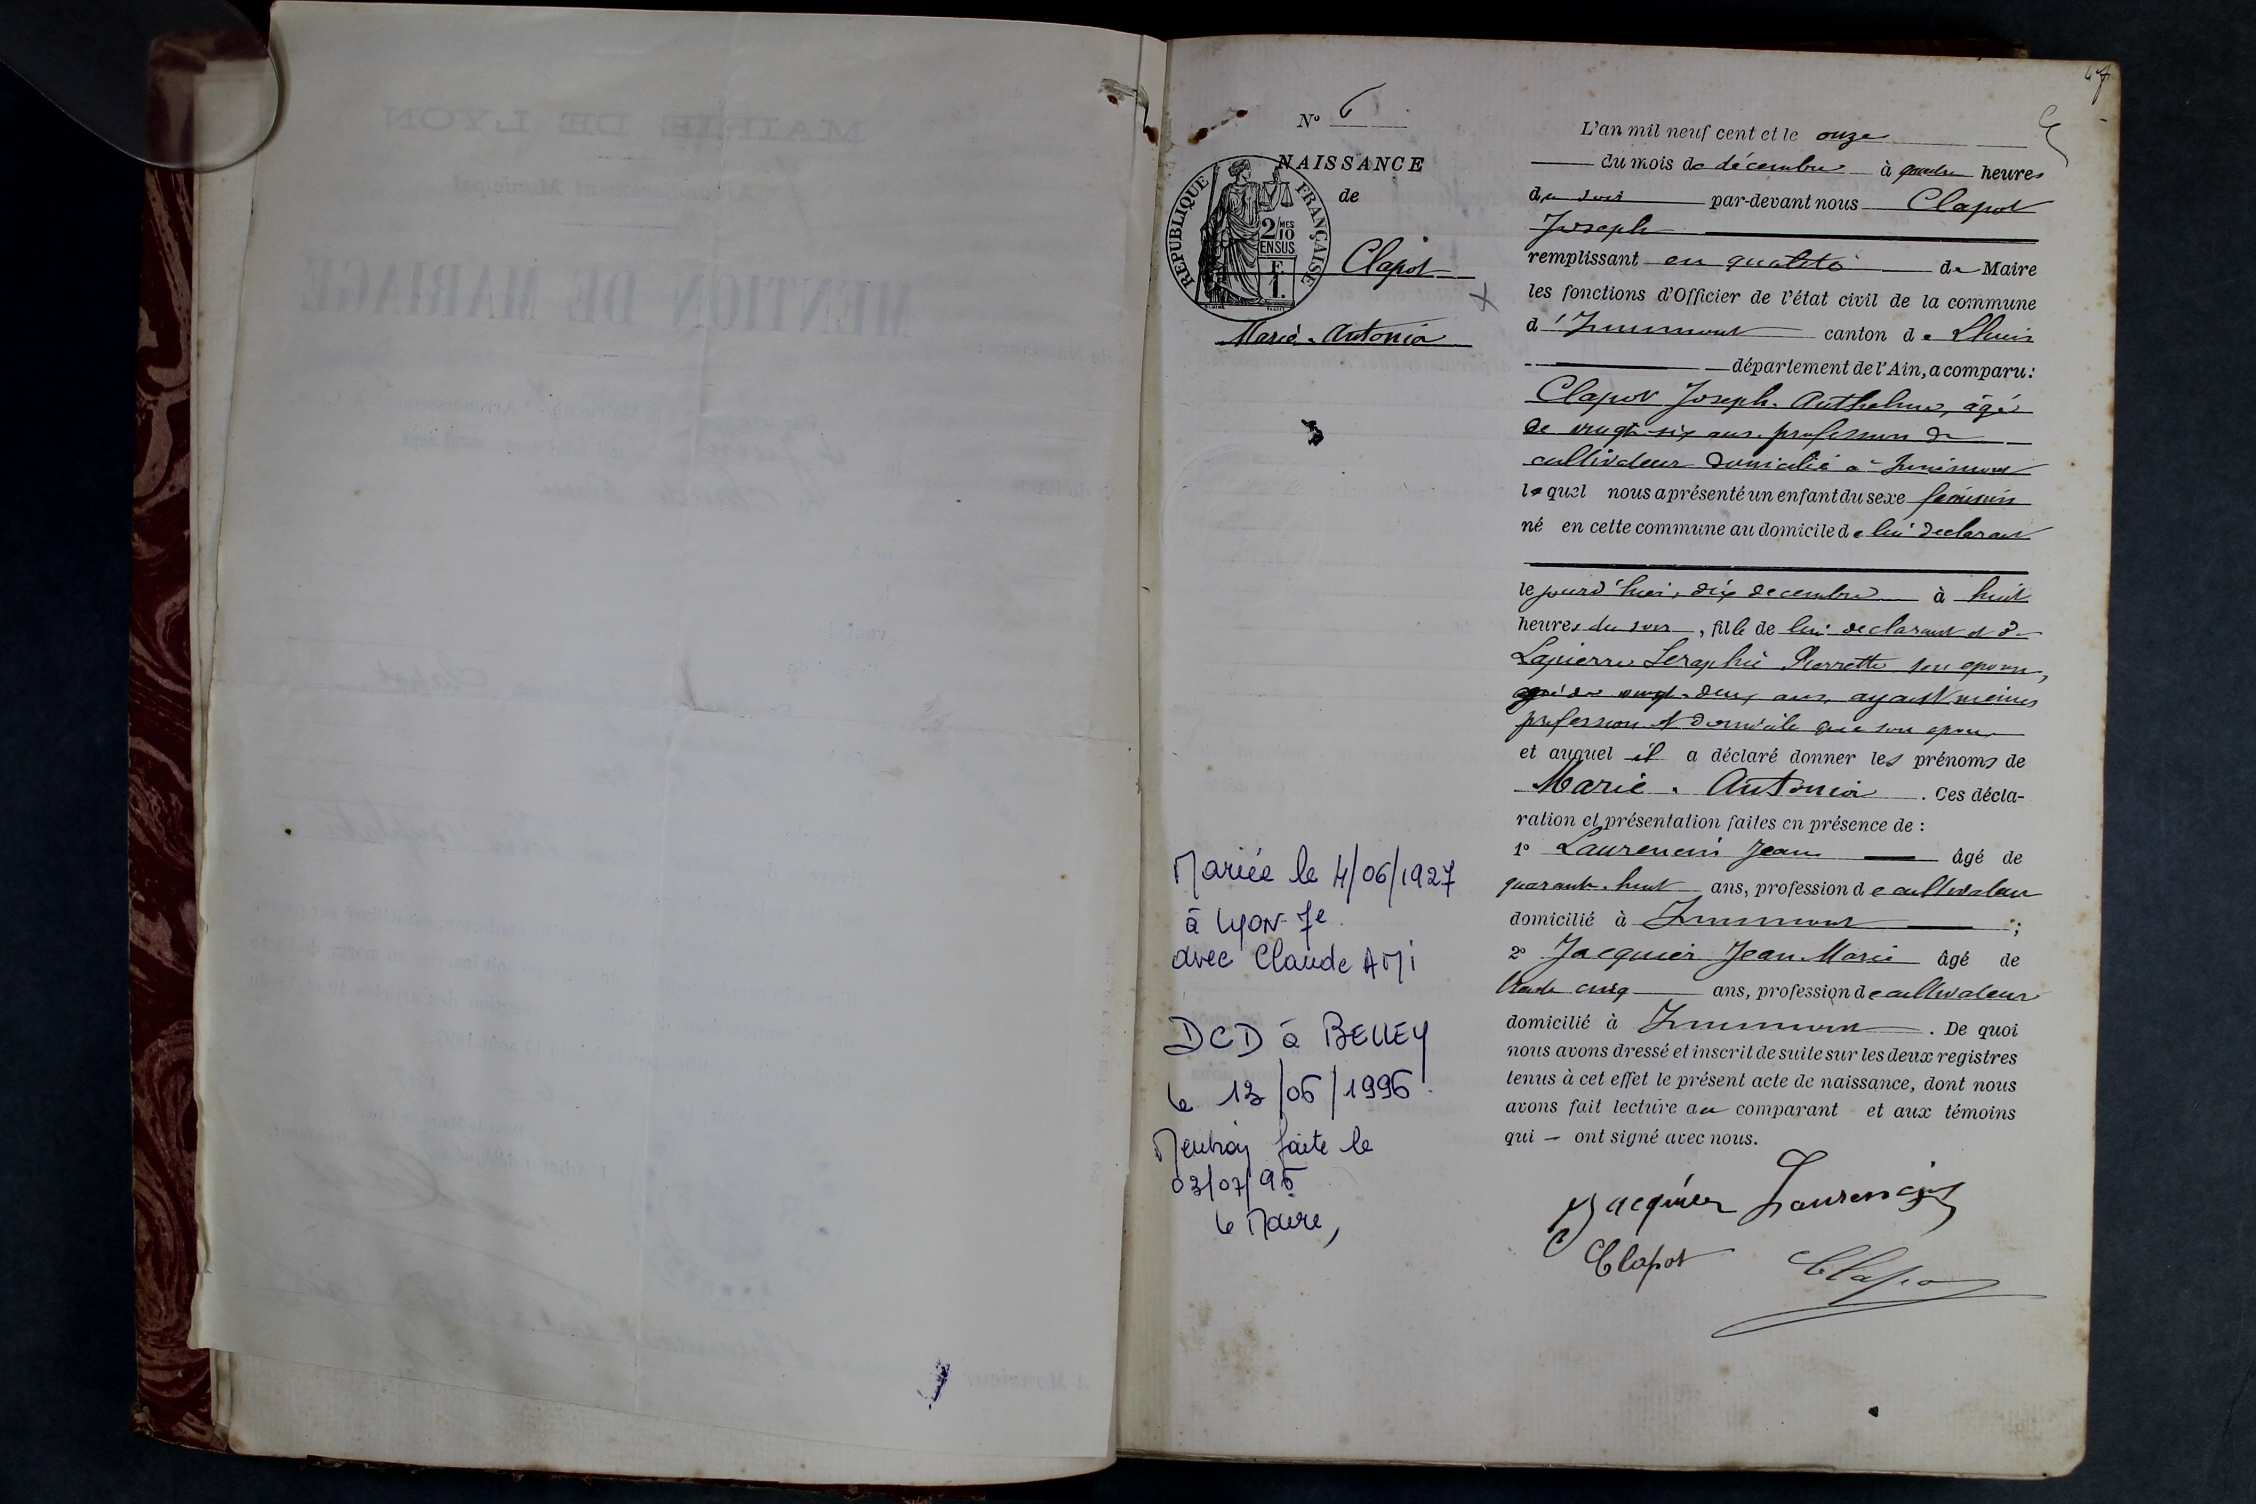 MAIRIE DE LYON
MENTION DE MARIAGE
47
N° 6
NAISSANCE
de
REPUBLIQUE FRANÇAISE
2/10 MES
EN SUS
F.
1.
Clapot
Marie-Antonia
Mariée le 4/06/1927
à Lyon-7e
avec Claude AMI
DCD à BELLEY
le 13/06/1996
Mention faite le
03/07/96
le Maire,
L'an mil neuf cent et le onze
du mois de décembre à quatre heures
du soir par-devant nous Clapot
Joseph
remplissant en qualité de Maire
les fonctions d'Officier de l'état civil de la commune
d'Innimont canton de Lhuis
département de l'Ain, a comparu:
Clapot Joseph-Anthelme, âgé
de vingt-six ans, profession de
cultivateur domicilié à Innimont
lequel nous a présenté un enfant du sexe féminin
né en cette commune au domicile de lui déclarant
le jourd'hier, dix décembre à huit
heures du soir, fille de lui déclarant et de
Lapierre Séraphie Pierrette son épouse,
âgée de vingt-deux ans, ayant mêmes
profession et domicile que son époux
et auquel il a déclaré donner les prénoms de
Marie-Antonia. Ces décla-
ration et présentation faites en présence de :
1° Laurencin Jean âgé de
quarante-huit ans, profession de cultivateur
domicilié à Innimont ;
2° Jacquier Jean-Marie âgé de
trente cinq ans, profession de cultivateur
domicilié à Innimont. De quoi
nous avons dressé et inscrit de suite sur les deux registres
tenus à cet effet le présent acte de naissance, dont nous
avons fait lecture au comparant et aux témoins
qui – ont signé avec nous.
Jacquier Laurencin
Clapot Clapot